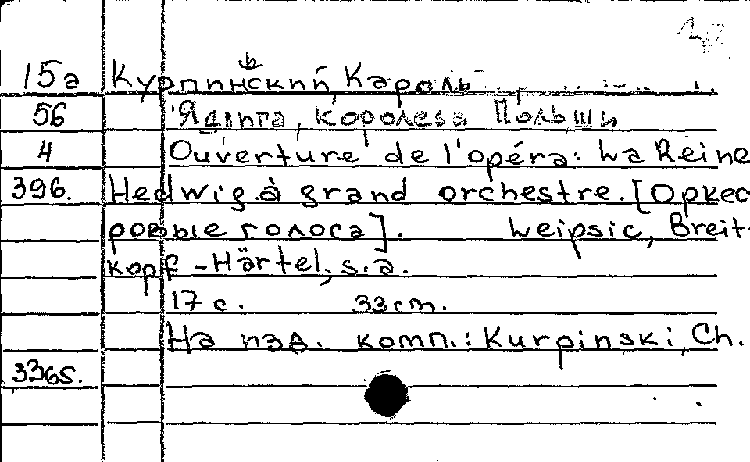 15а Курпиньский, Кароль
56 Ядвига, королева Польши
4 Ouverture de l'opéra: La Reine
396. Hedwig à grand orchestre. [Оркес
ровые голоса]. Leipsic, Breit-
kopf - Härtel, s.a.
17 с. 33 cm.
На изд. комп.: Kurpinski, Ch.
336s.